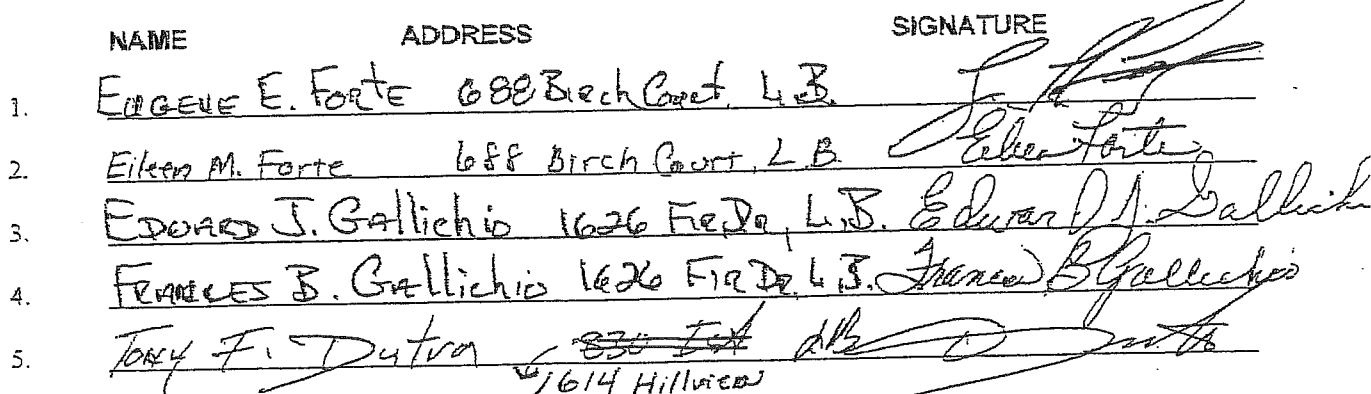 NAME ADDRESS SIGNATURE
1. EUGENE E. FORTE 688 Birch Court, L.B.
2. Eileen M. Forte 688 Birch Court, L.B. Eileen Forte
3. EDWARD J. GAllichio 1626 FIR DR, L.B. Edward J. Gallichio
4. FRANCES B. GAllichio 1626 FIR DR. L.B. Frances B Gallichio
5. TONY F. Dutra 830 LB
1614 Hillview